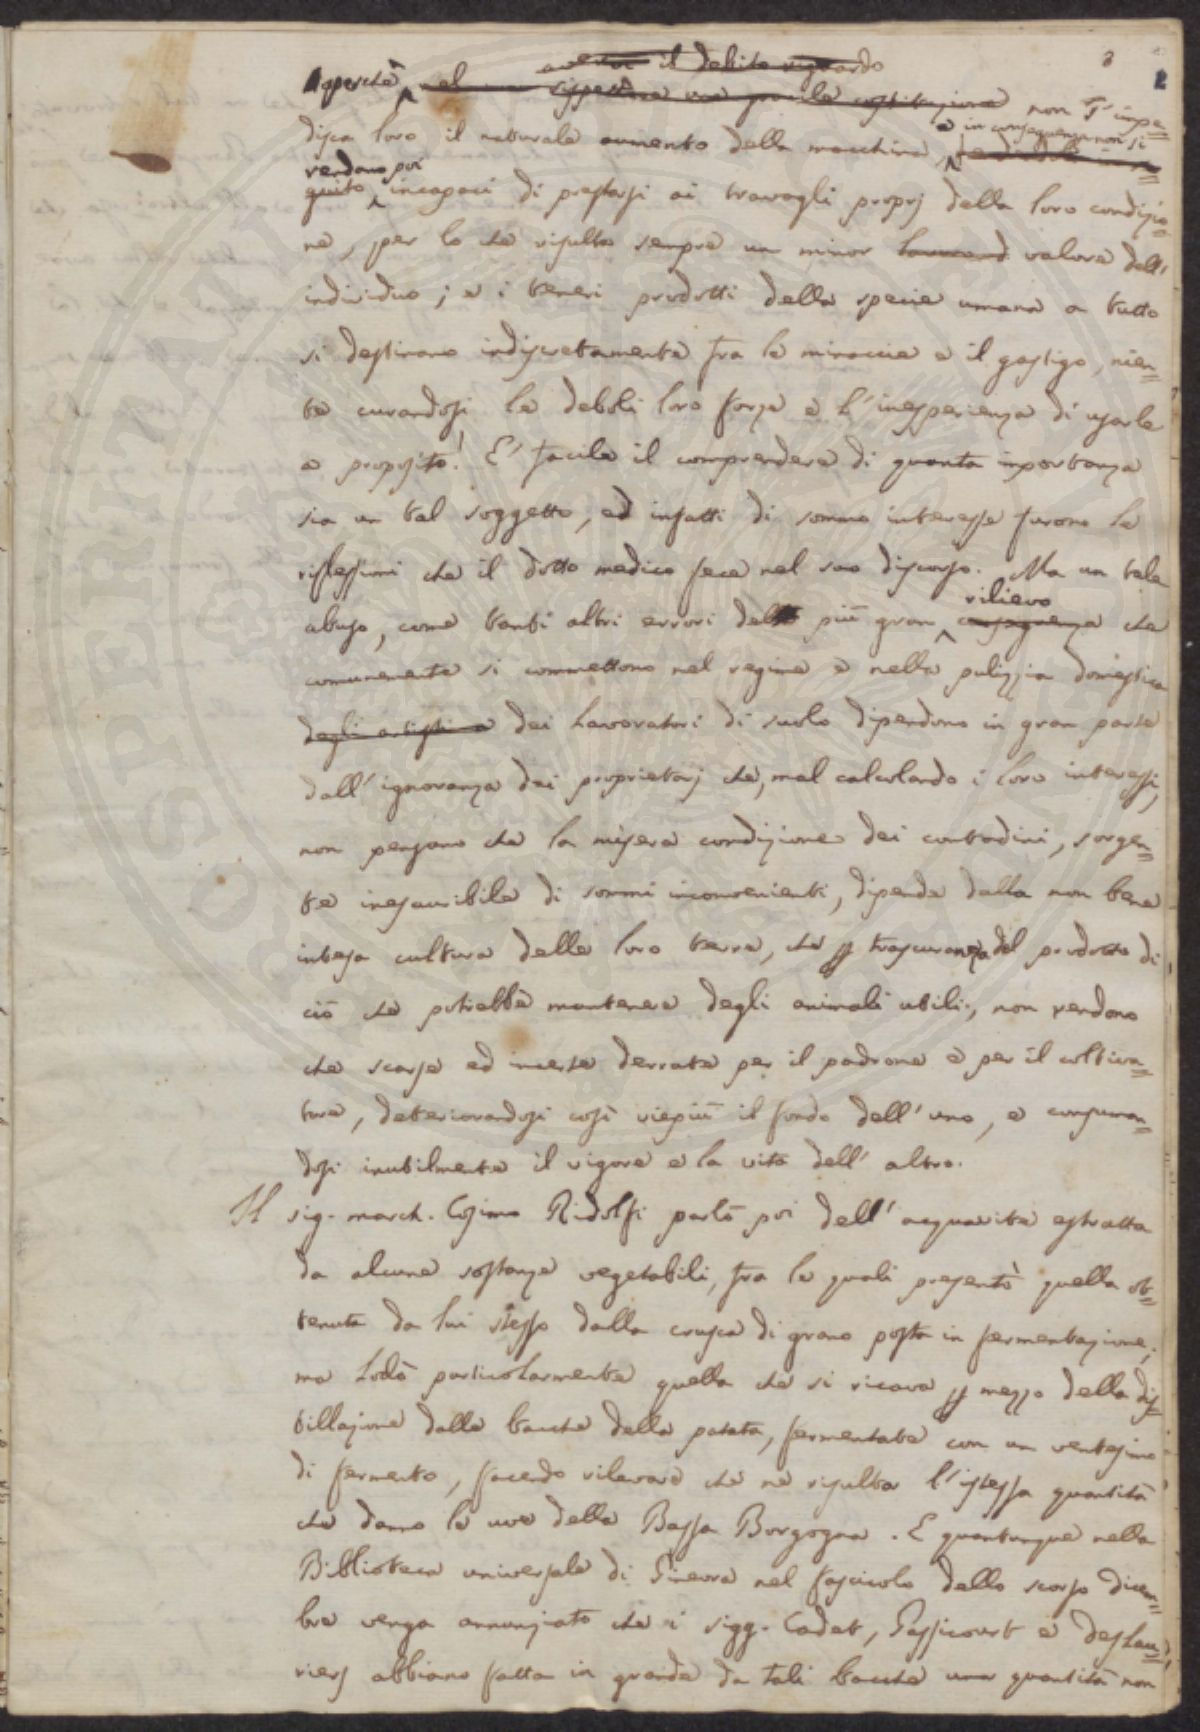 3
2
avere il debito riguardo
perchè nel rispettare una gracile costituzione non s'impe=
e in conseguenza non si
disca loro il naturale aumento della macchina,
rendano poi
guito incapaci di prestarsi ai travagli proprj della loro condizio=
ne, per lo che risulta sempre un minor valore dell'
individuo; e i teneri prodotti della specie umana a tutto
si destinano indiscretamente fra le minaccie e il gastigo, nien=
te curandosi le deboli loro forze e l'inesperienza di usarle
a proposito! E' facile il comprendere di quanta importanza
sia un tal soggetto, ed infatti di sommo interesse furono le
riflessioni che il dotto medico fece nel suo discorso. Ma un tale
rilievo
abuso, come tanti altri errori del più gran conseguenza che
comunemente si commettono nel regime e nella pulizzia domestica
degli artisti e dei lavoratori di suolo dipendono in gran parte
dall'ignoranza dei proprietarj che, mal calcolando i loro interessi,
non pensano che la misera condizione dei contadini, sorgen=
te inesauribile di sommi inconvenienti, dipende dalla non bene
intesa cultura delle loro terre, che p trascuranza del prodotto di
ciò che potrebbe mantenere degli animali utili, non rendono
che scarse ed incerte derrate per il padrone e per il coltiva=
tore, deteriorandosi così viepiù il fondo dell'uno, e consuman=
dosi inutilmente il vigore e la vita dell'altro.
Il sig. march. Cosimo Ridolfi parlò poi dell'acquavite estratta
da alcune sostanze vegetabili, fra le quali presentò quella ot=
tenuta da lui stesso dalla crusca di grano posta in fermentazione;
ma lodò particolarmente quella che si ricava p mezzo della dis=
tillazione dalle bacche della patata, fermentate con un ventesimo
di fermento, facendo rilevare che ne risulta l'istessa quantità
che danno le uve della Bassa Borgogna. E quantunque nella
Biblioteca universale di Ginevra nel fascicolo dello scorso dicem=
bre venga annunziato che i sigg. Cadet, Gassicourt e Deslau=
riers abbiano fatta in grande da tali bacche una quantità non